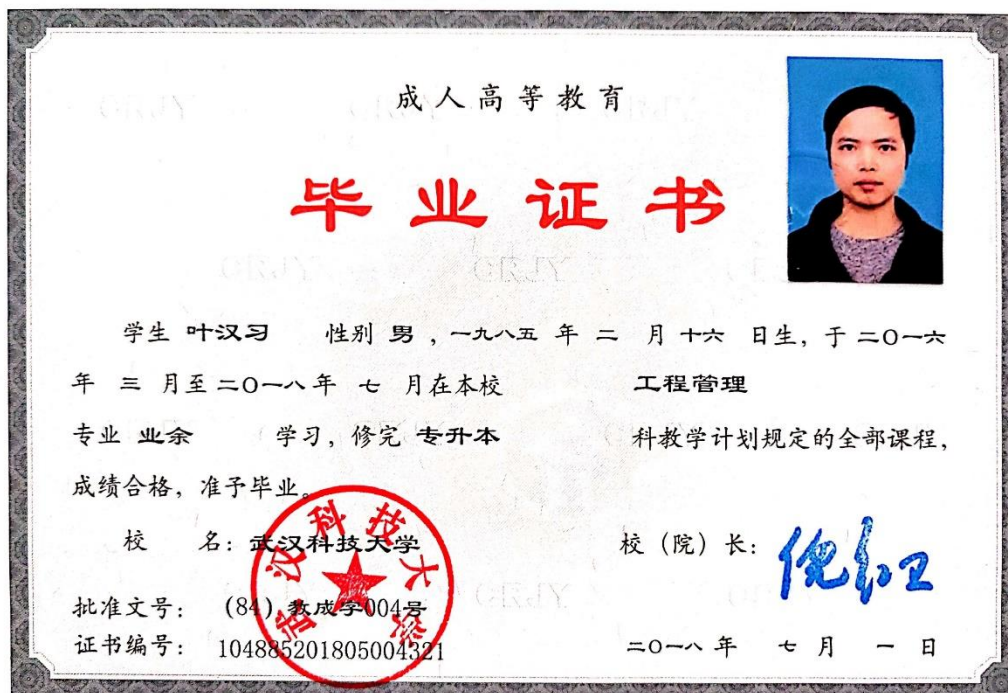 成人高等教育
毕业证书
学生 叶汉习 性别 男 ，一九八五 年 二 月 十六 日生，于 二〇一六
年 三 月至 二〇一八 年 七 月在本校 工程管理
专业 业余 学习，修完 专升本 科教学计划规定的全部课程，
成绩合格，准予毕业。
校 名：武汉科技大学 校（院）长：倪红卫
武汉科技大学
批准文号：(84)教成字004号
证书编号：104885201805004321 二〇一八 年 七 月 一 日